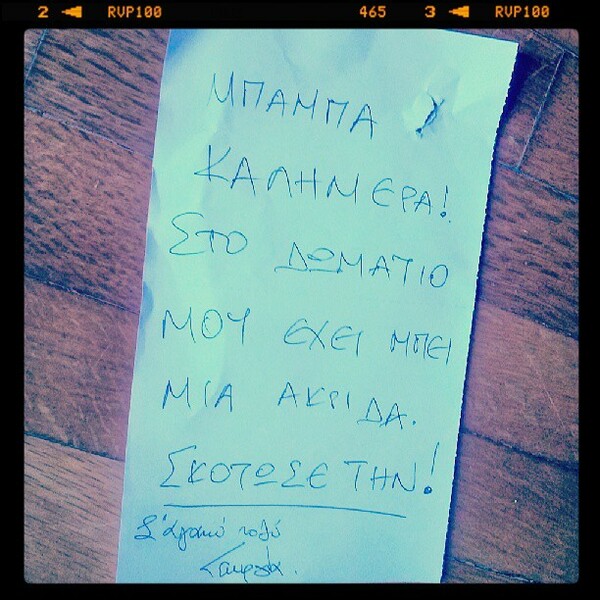 2 RVP100 465 3 RVP100
ΜΠΑΜΠΑ
ΚΑΛΗΜΕΡΑ!
ΣΤΟ ΔΩΜΑΤΙΟ
ΜΟΥ ΕΧΕΙ ΜΠΕΙ
ΜΙΑ ΑΚΡΙΔΑ.
ΣΚΟΤΩΣΕ ΤΗΝ!
Σ'αγαπώ πολύ